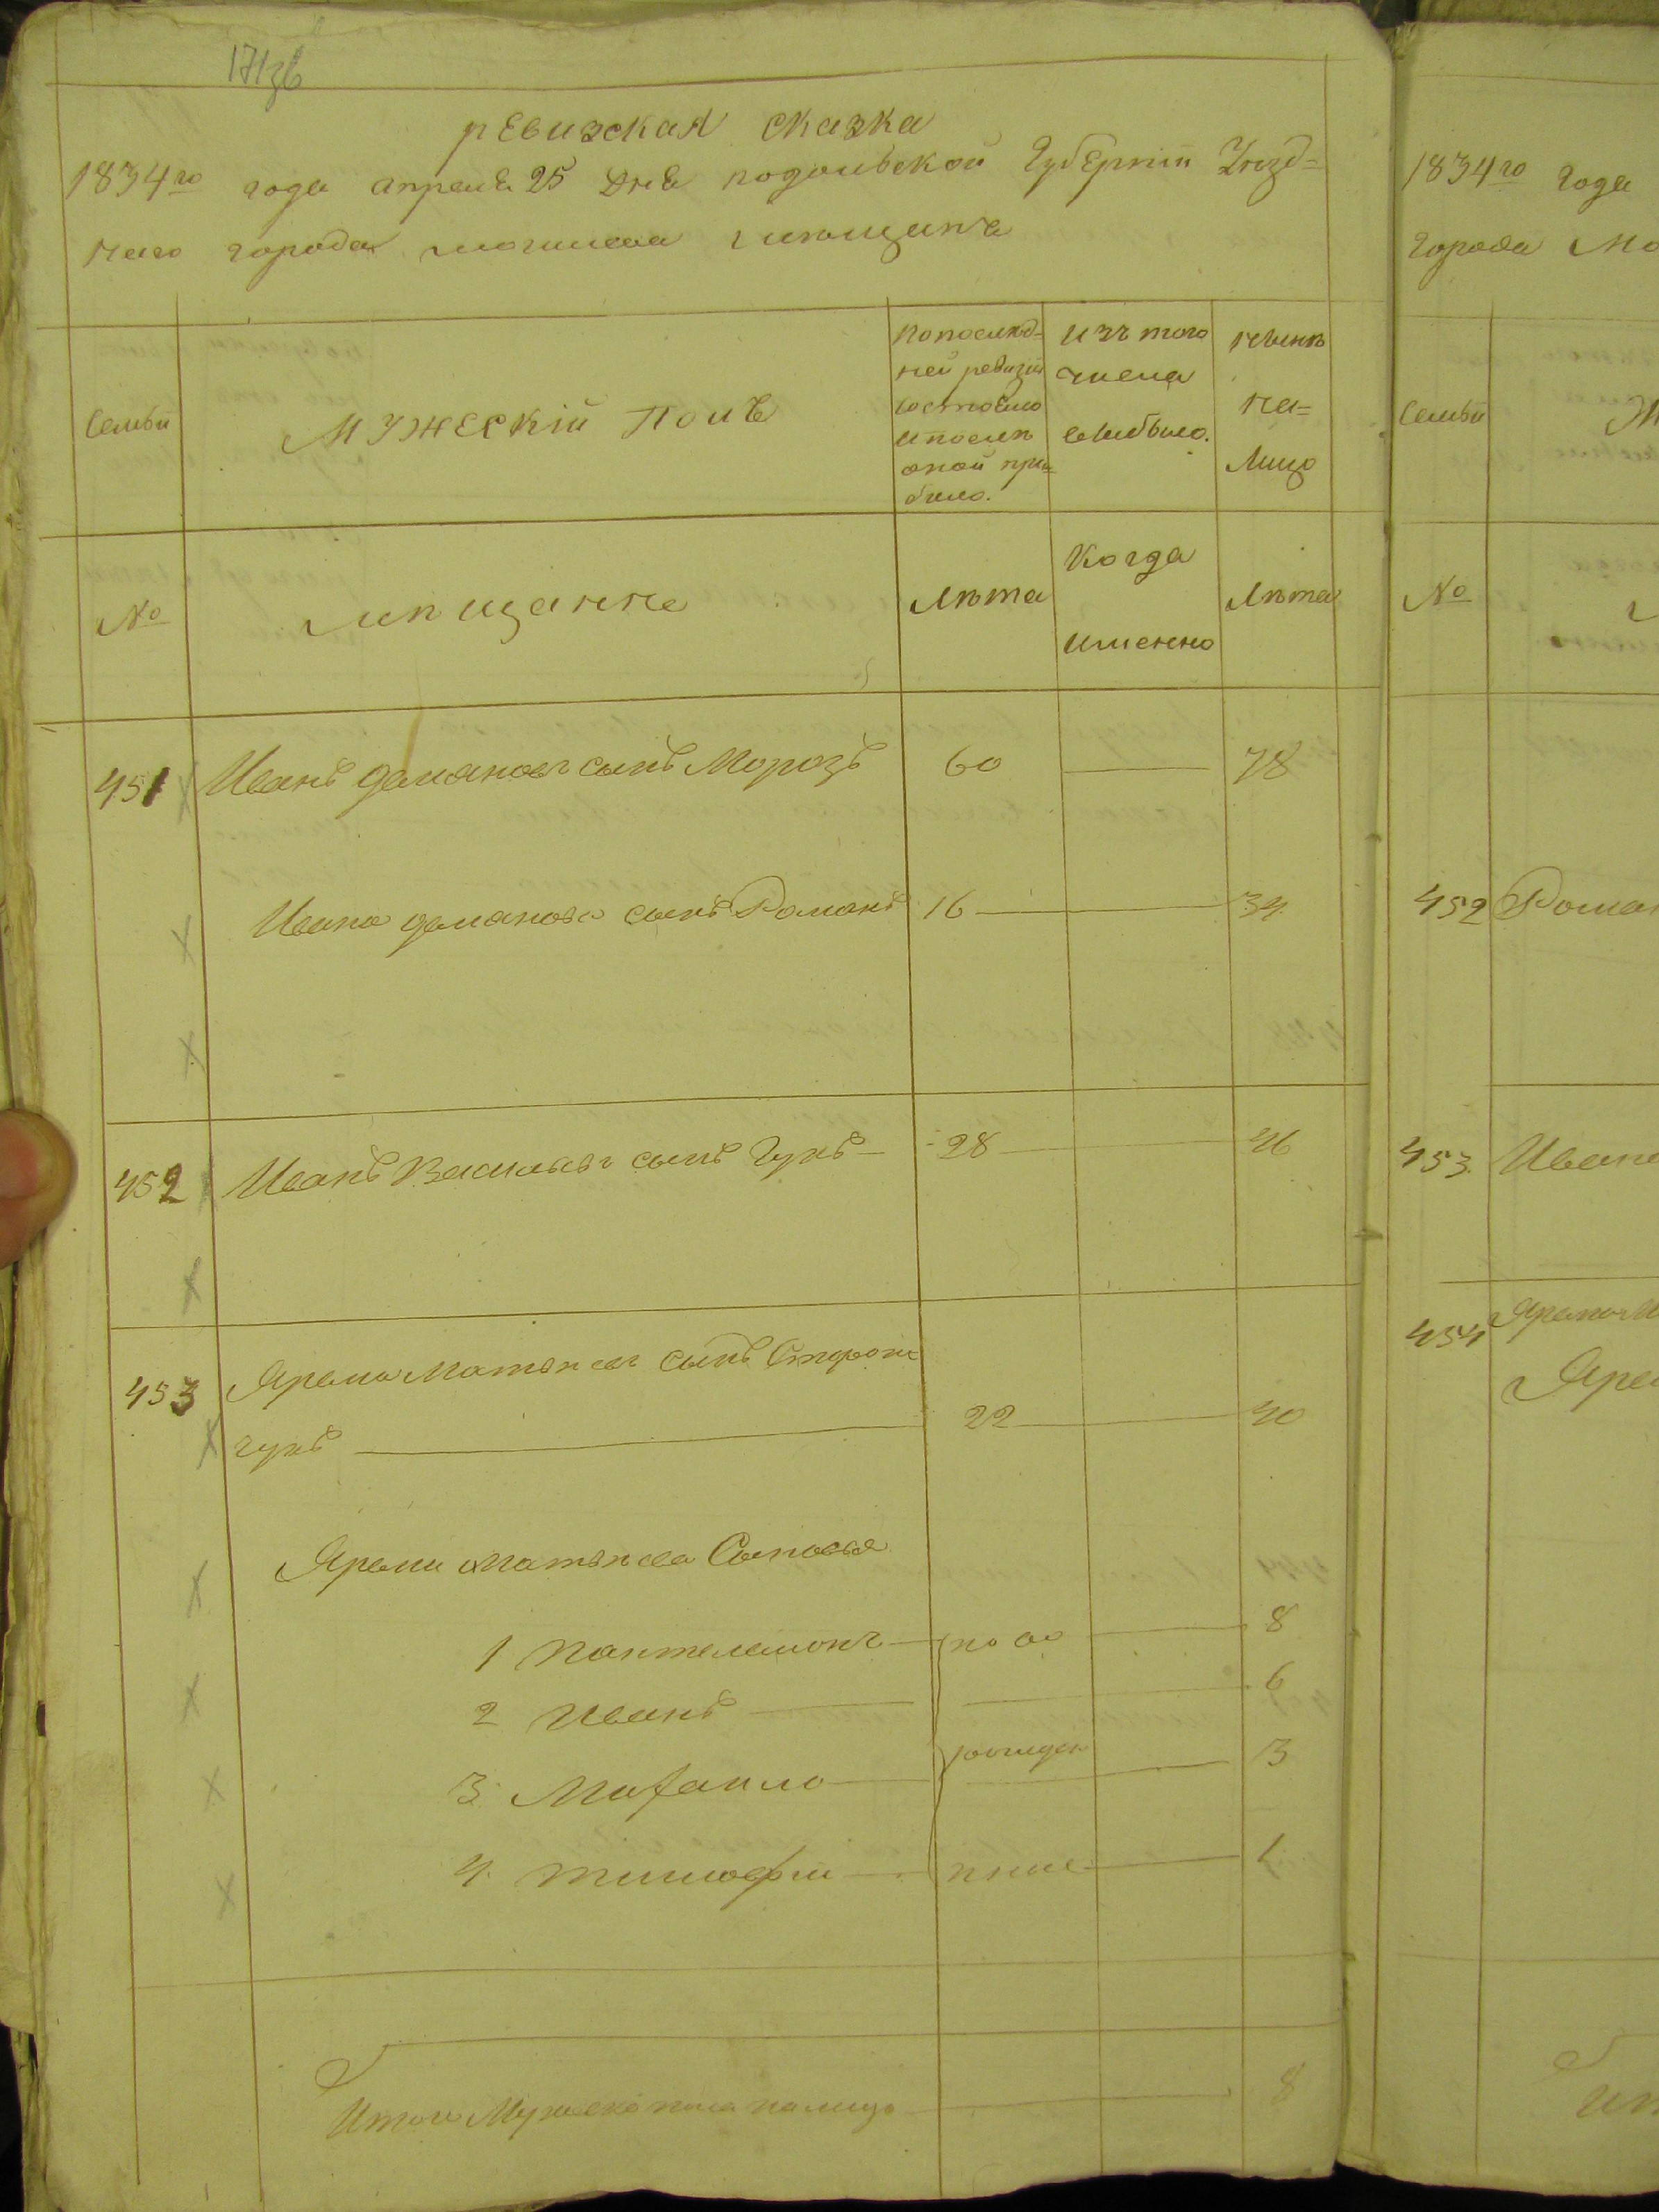 171зв
ревизская сказка
1834го года апреля 25 дня подольской Губерніи Уезд=
наго города могилева
Семьи
Мужескій Полъ
по послед=
ней ревизіи
состояло
и после
оной при=
было.
изъ того
числа
выбыло.
ныне
на=
лицо
№
мещанне
Лѣта
Когда
именно
Лѣта
451 Иванъ демяновъ сынъ Морозъ 60 78
Ивана демянова сынъ Романъ 16 34
452 Иванъ Васильевъ сынъ Гукъ 28 46
453 Ярема Матвѣевъ сынъ Сторожи
гукъ 22 40
Яремы Матвѣева Сыновья
1 Пантелемонъ по 8
2 Иванъ 6
3 Михаило рожден 3
4. Тимофѣй 1
Итого Мужеска пола налицо 8
1834го года
города Мо
Семьи
№
452 Роман
453. Ивана
454 Ярема М
Яре